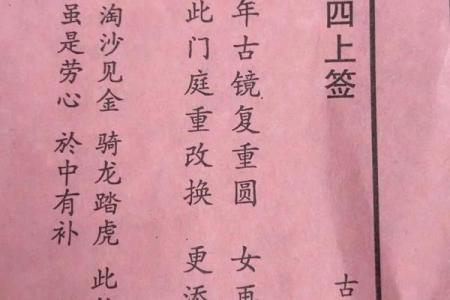 四上签
古
年古镜复重圆 女再
此门庭重改换 更添
淘沙见金 骑龙踏虎 此
虽是劳心 於中有补